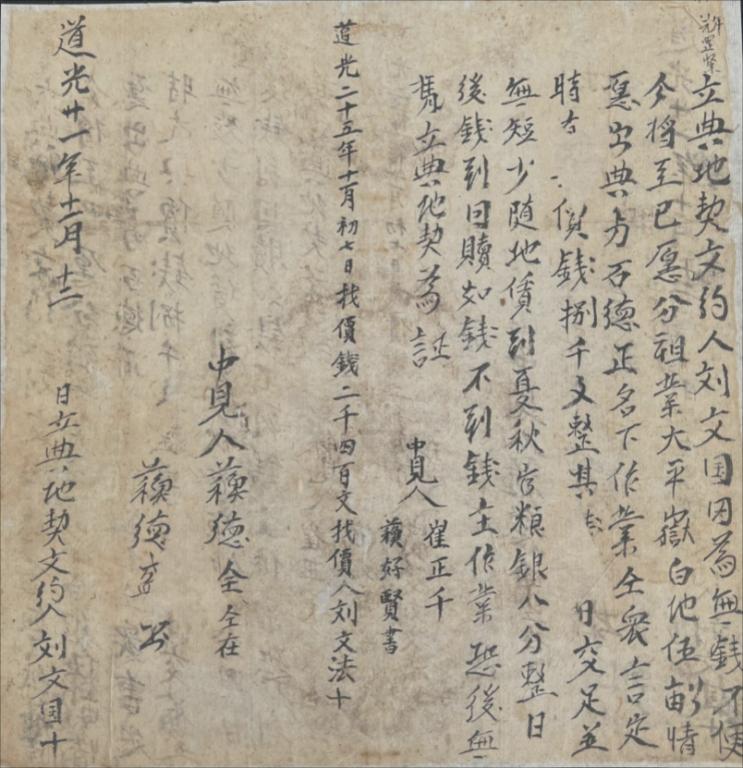 立典地契文约人刘文国因為無錢不便
今将至己愿分祖業大平嶽白地伍畝情
愿出典与石德正名下作業仝衆言定
時 價錢捌千文整其 日交足並
無短少随地賃到夏秋 粮銀八分整日
後錢到回贖如錢不到錢主作業恐後無
凴立典地契為証
中見人 崔正千
蘓好賢書
道光二十五年十一月初七日找價錢二千四百文找價人刘文法十
中見人蘓德全仝在
蘓德
道光廿一年十二月十二 日立典地契文约人刘文国十